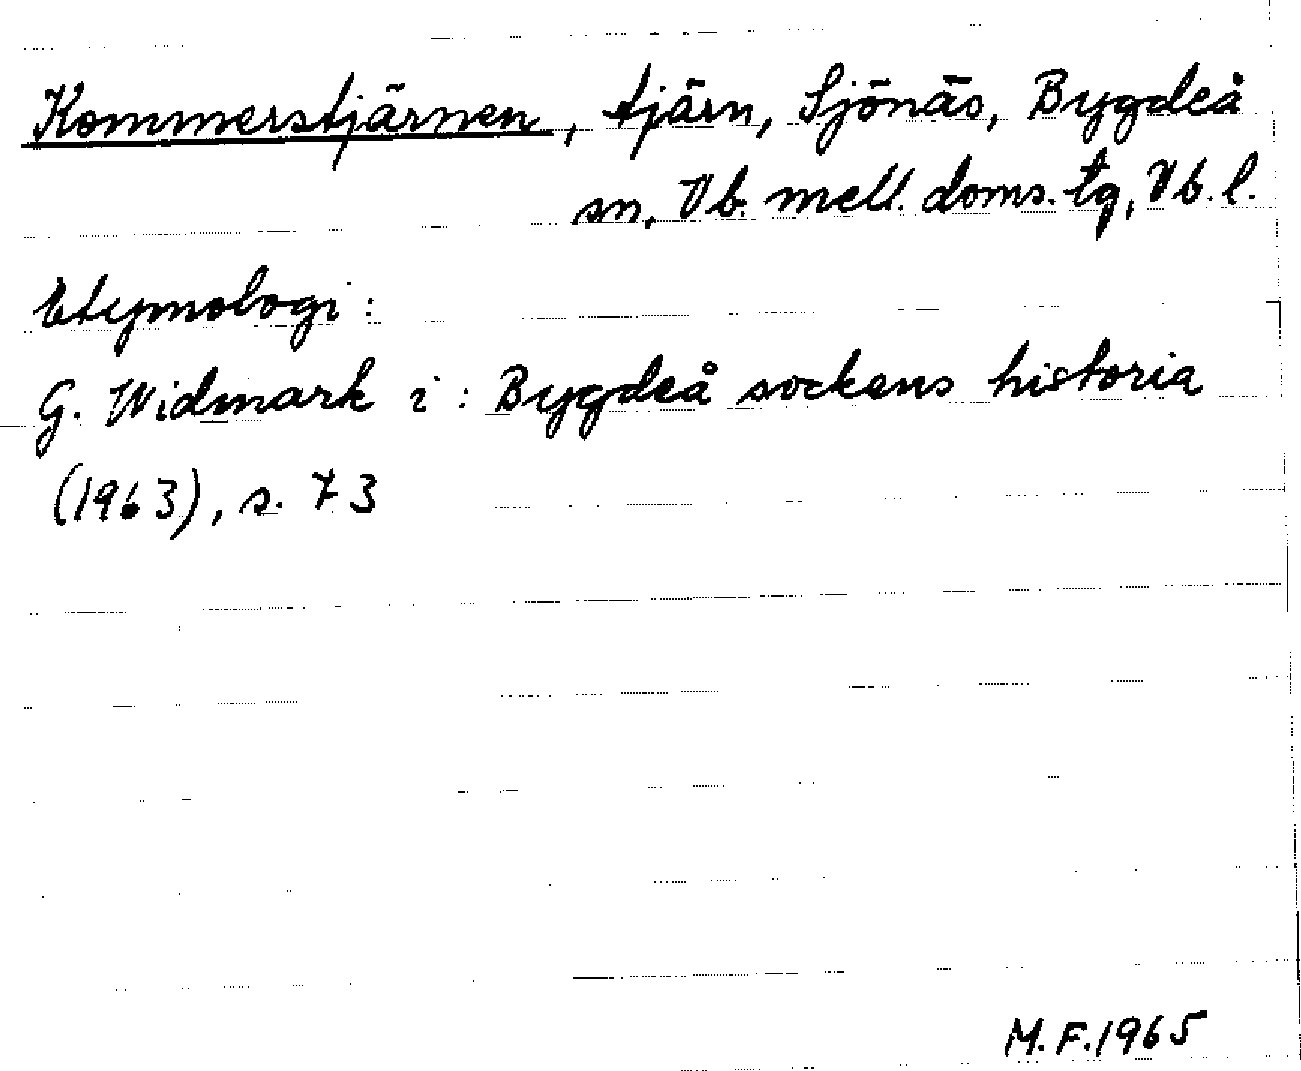 Kommerstjärnen, tjärn, Sjönäs, Bygdeå
sn, Vb. mell. doms. tg, Vb. l.
Etymologi:
G. Widmark i: Bygdeå sockens historia
(1963), s. 73
M.F. 1965